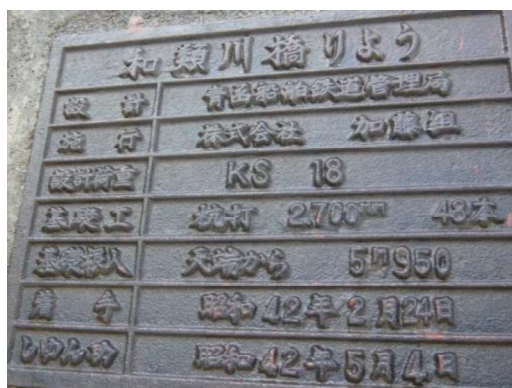 和類川橋りよう
設計 青函船舶鉄道管理局
施行 株式会社 加藤組
設計荷重 KS 18
基礎工 杭打 2,700ᵐᵐ 48本
基礎根入 天端から 5ᵐ950
着手 昭和42年2月24日
しゆん功 昭和42年5月4日